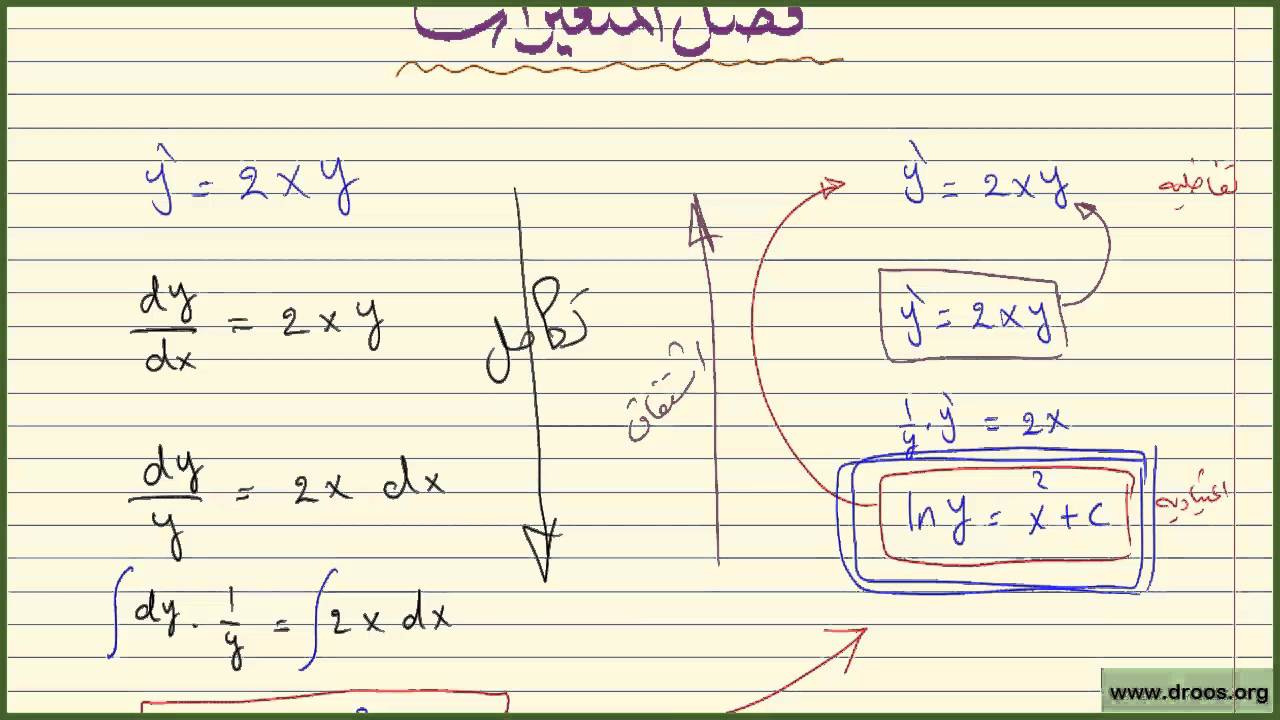 فصل المتغيرات
ỳ = 2xy
dy/dx = 2xy
dy/y = 2x dx
∫ dy · 1/y = ∫ 2x dx
تكامل
اشتقاق
ỳ = 2xy
تفاضلية
ỳ = 2xy
1/y · ỳ = 2x
ln y = x² + c
اعتيادية
www.droos.org